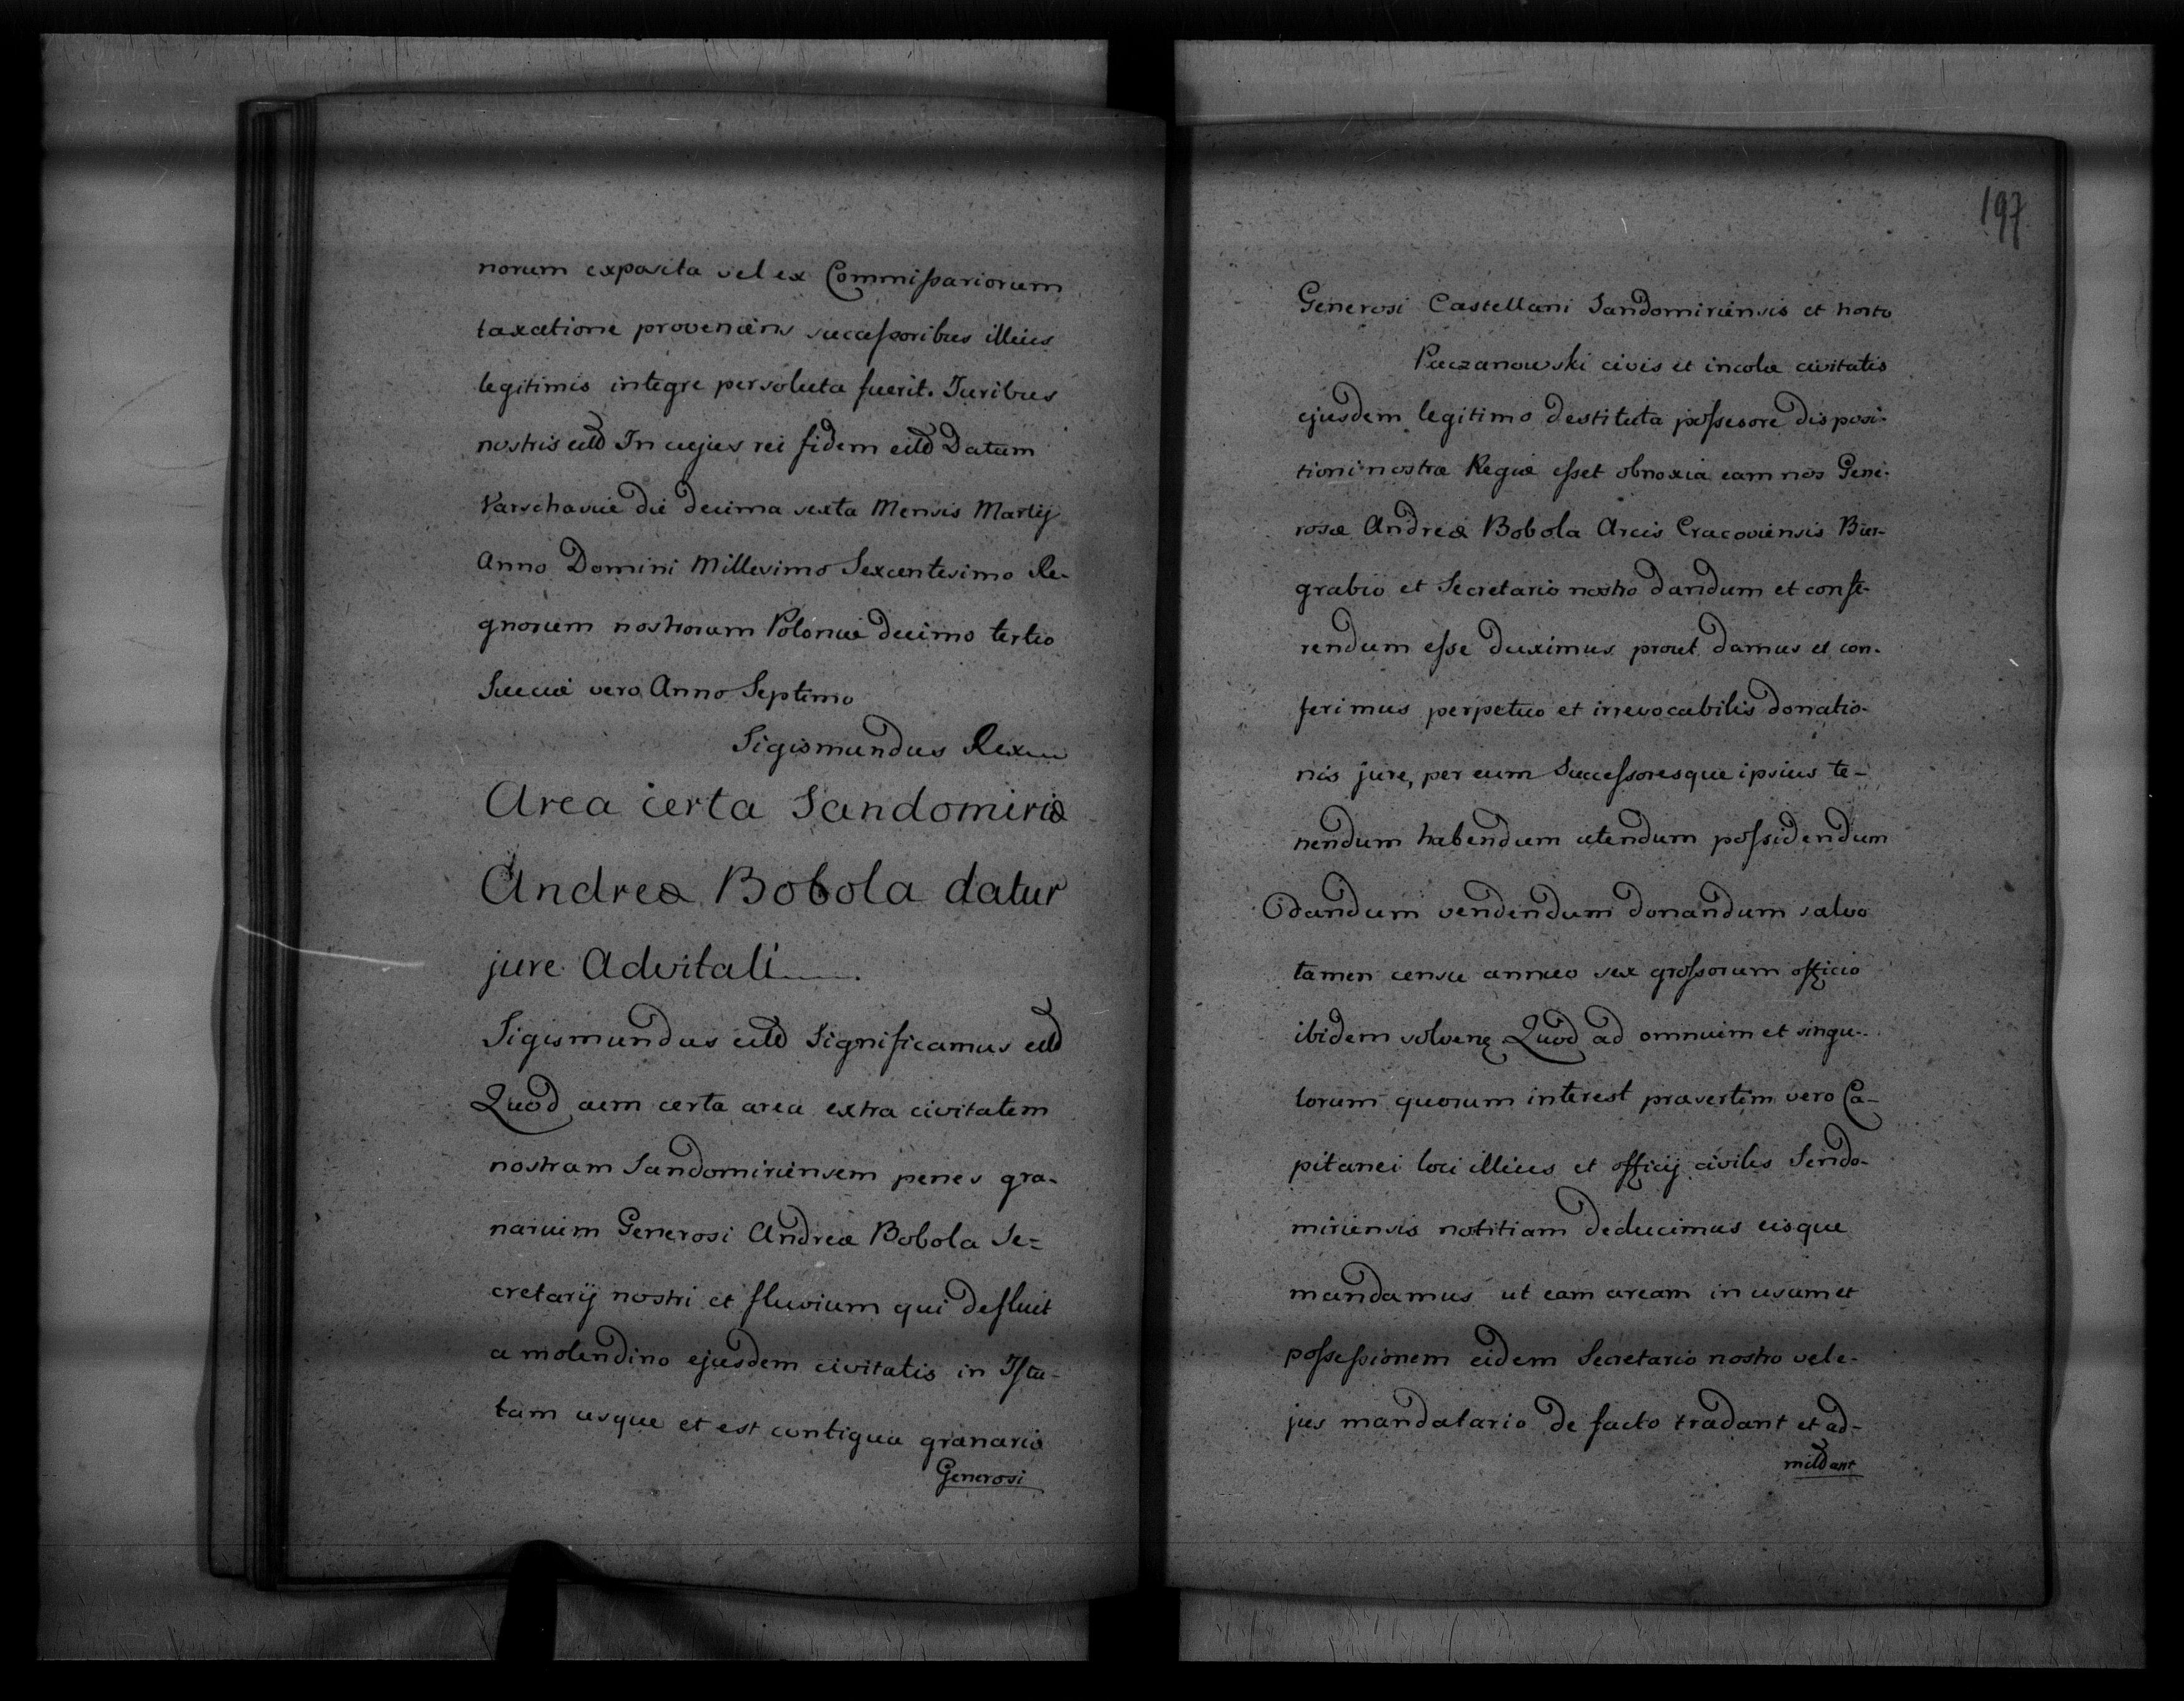 norum exposita vel ex Commissariorum
taxatione proveniens successoribus illius
legitimis integre persoluta fuerit. Juribus
nostris etts In cujus rei fidem etts Datum
Varschaviæ die decima sexta Mensis Martij
Anno Domini Millesimo Sexcentesimo Re-
gnorum nostrorum Poloniæ decimo tertio
Sueciæ vero Anno Septimo
Sigismundus Rex
Area certa Sandomiriæ
Andreæ Bobola datur
jure Advitali
Sigismundus etts Significamus etts
Quod cum certa area extra civitatem
nostram Sandomiriensem penes gra-
narium Generosi Andreæ Bobola Se=
cretarij nostri et fluvium qui defluit
a molendino ejusdem civitatis in Istu-
lam usque et est contigua granario
Generosi
197
Generosi Castellani Sandomiriensis et horto
Paczanowski civis et incolæ civitatis
ejusdem legitimo destituta possesore disposi-
tioni nostræ Regiæ esset obnoxia eam nos Gene-
rosæ Andreæ Bobola Arcis Cracoviensis Bur-
grabio et Secretario nostro dandum et confe-
rendum esse duximus prout damus et con-
ferimus perpetuo et irrevocabilis donatio-
nis jure, per eum Successoresque ipsius te-
nendum habendum utendum possidendum
dandum vendendum donandum salvo
tamen censu annuo sex grossorum officio
ibidem solven Quod ad omnium et singu-
lorum quorum interest præsertim vero Ca-
pitanei loci illius et officij civilis Sendo-
miriensis notitiam deducimus eisque
mandamus ut eam aream in usum et
possessionem eidem Secretario nostro vel e-
jus mandatario de facto tradant et ad-
mittant